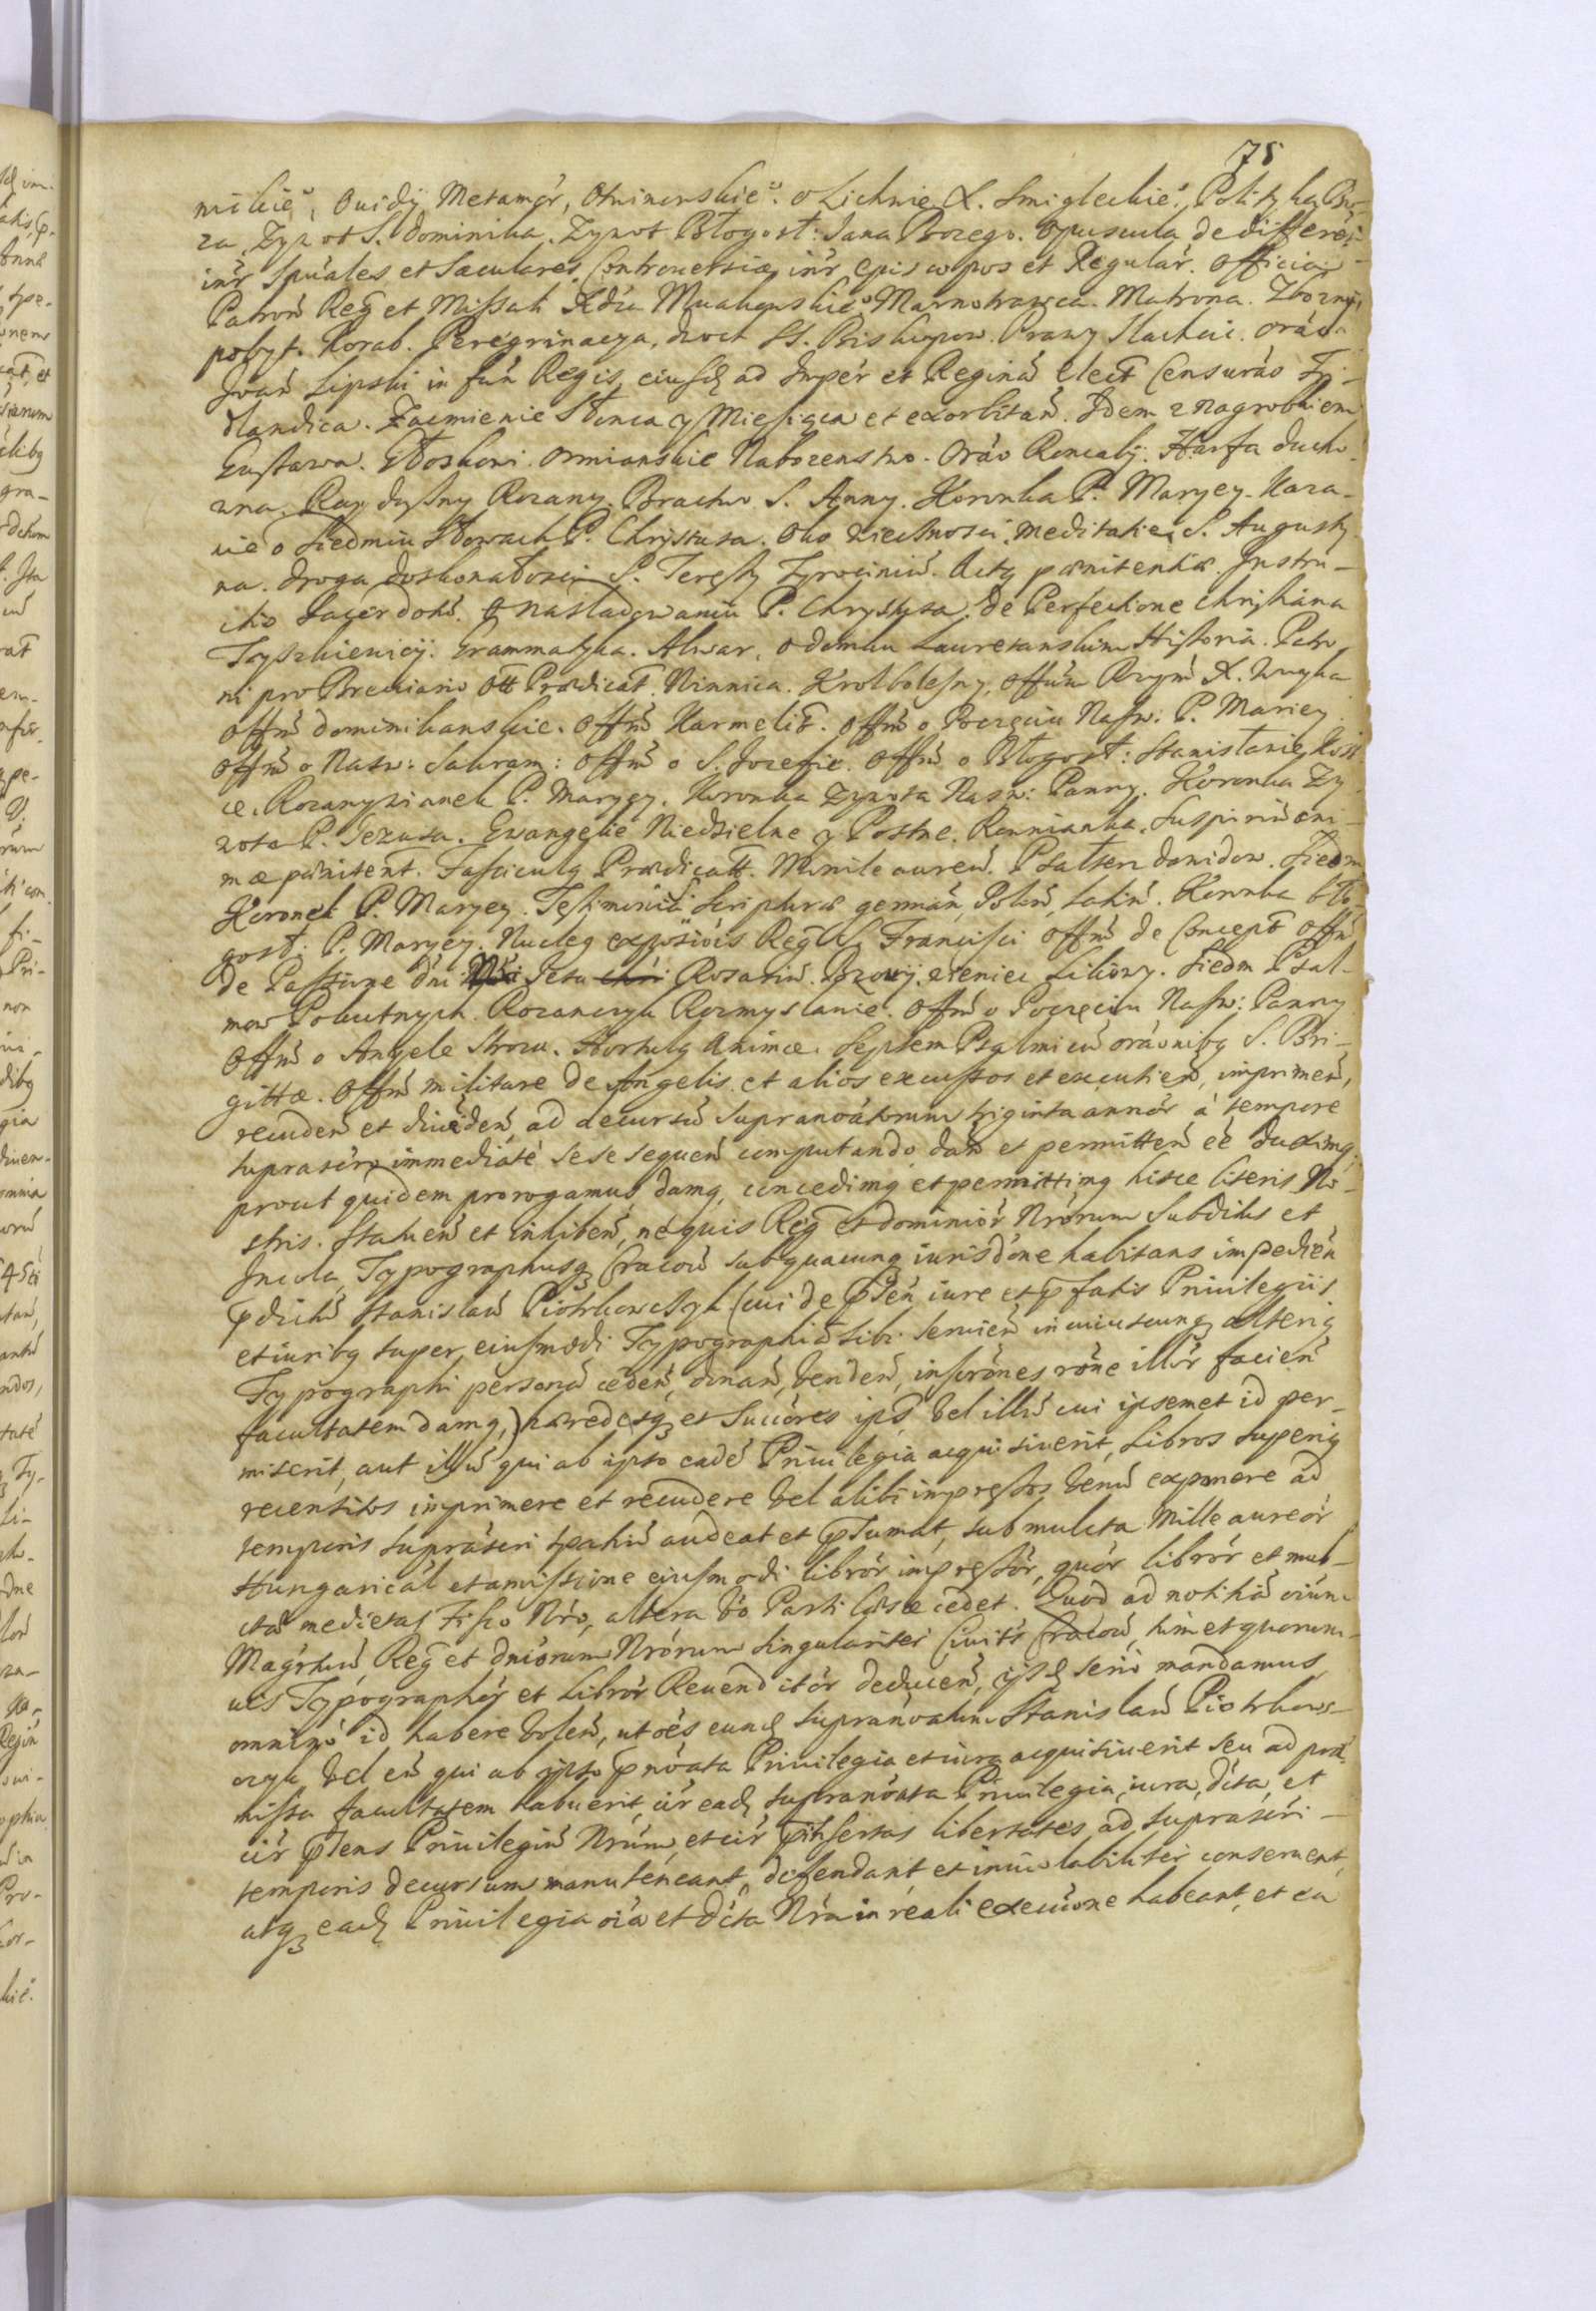 75
mikie°, Ouidÿ Metamór, Otwinowskie°. o Lichwie X. Smigleckie°, Polityka Bo-
za, Zywot S. Dominika. Zywot Błogosł: Jana Bozego. Opuscula de differeń:
intr Spũales et Sæculares. Controuersiæ intr Episcopos et Regulár. Officia
Patroń Reg̃ et Missah Xdza Muchowskie° Marnotrawca. Matrona. Zbozny
pobyt. Korab. Peregrinacya, dwoch SS. Biskupow. Prawy Slachcic. oráo
Joań Lipski in fuń Regis, eiusd̃ ad Impér et Reginã Elect̃ Censuráo Fri-
dlandica. Zacmienie Słonca y Miesiąca et exorbitań. Idem z nagrobkiem
Gustawa. Głoskowi. Ormianskie Nabozenstwo. Oráo Roncalÿ. Harfa ducho
wna. Ray dusny Rozany. Bractwo S. Anny. Koronka P. Maryey. Kaza-
nie o Siedmiu Słowach P. Chrystusa. Oko wiecznosci. Meditatie S. Augusty
na. Droga doskonałosci S. Teresy Tyrociniũ. Acty pœnitentiæ. Instru-
ctio Sacerdotũ. O nasladowaniu P. Chrystusa. De Perfectione Christiana
Tyszkiewicÿ. Grammatyka. Alwar. O domku Lauretanskim Historia. Patro
ni pro Breuiario Ott̃ Prædicat̃. Winnica. Krol bolesny, Offiũm Rzym̃ X. Wuyka
Offm̃ dominikanskie. Offm̃ Karmelit̃. Offm̃ o Poczęciu Nasw: P. Mariey
Offm̃ o Nasw: Sakram: Offm̃ o S. Jozefie. Offm̃ o Błogosł: Stanisławie Kost
ce. Rozany wianek P. Maryey. Koronka Zywota Nasw: Panny. Koronka Zy
wota P. Jezusa. Ewangelie Niedzielne y Postne. Rownianka. Suspiriũ ani-
mæ pœnitent̃. Fasciculg Prædicatt̃. Monile aureũ. Psałterz dawidow. Siedm
Koronek P. Maryey. Testimonia Scripturæ germań, Polon̄, Latiń. Koronka bło
gosł: P. Maryey. Nucleg expõsióis Reg̃ S. Francisci Offm̃ de Concept̃ Offm̃
de Passione dni Nri Jesu Chri Rosariũ. Rzowy. wieniec Liliowy. Siedm Psal-
mow Pokutnych. Rozanczyk Rozmyslanie. Offm̃ o Poczęciu Nasw: Panny
Offm̃ o Angele Strozu. Hortulg Animæ. Septem Psalmi cũ oráonibg S. Bri-
gittæ. Offm̃ militare de Angelis. et alios excussos et excutień, imprimeń,
recudeń et diuideń ad decursũ supranoátorum triginta annór á tempore
suprascro immediáté sese sequeń computando, dań et permitteń eé duximg
prout quidem prorogamus, damg, concedimg et permittimg hisce literis No-
stris. Statueń et inhibeń, né quis Reg̃ et Dominiór Nrórum Subditus et
Incola Typographusq̨ Cracou̇ sub quacunq̨ iurisdóne habitans impedień
p̃dictũ Stanislaũ Piotrkowczyk (cui de p̃seń iure et p̃fatis Priuilegiis
et iuribg super eiusmodi Typographiã sibi seruień in cuiuscunq̨ alterig
Typographi personã cedeń, donań, vendeń, inscrónes róne illór facień
facultatem damg,) hæredesq̨ et Succóres ips̃ vel illũ cui ipsemet id per-
miserit, aut illũ qui ab ipso eadé Priuilegia acquisiuerit, Libros superig
recensitos imprimere et recudere vel alibi impressos venũ exponere ad
temporis suprascri spatiũ audeat et p̃sumat, sub mulcta Mille aureór
Hungaricál et amissione eiusmodi librór impressór, quór librór et mul-
ctæ medietas Fisco Nrõ, altera vó Parti læsæ cedet. Quod ad notitiã oiũm
Magrtuũ Reg̃ et dnĩorum Nrórum singulariter Ciuitis Cracou̇, tum et quorum-
uis Typographór et Librór Reuenditór deduceń, ijsd̃ serió mandamus
omninó id habere voleń, ut oés eund̃ supranoatum Stanislaũ Piotrkow-
czyk vel eũ qui ab ipso p̃noata Priuilegia et iura acquisiuerit seu ad præ
missa facultatem habuerit, cir ead̃ supranoata Priuilegia, iura, dcta et
cir p̃sens Priuilegiũ Nrũm, et cir p̃insertas libertates ad suprascri-
temporis decursum manuteneant, defendant et inuiolabiliter conseruent
atq̨ ead̃ Priuilegia oia et dcta Nra in reali execucione habeant, et ea